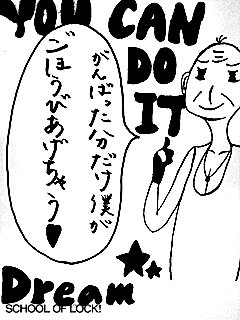 YOU CAN
DO
IT
がんばった分だけ僕が
ごほうびあげちゃう♥
Dream
SCHOOL OF LOCK!